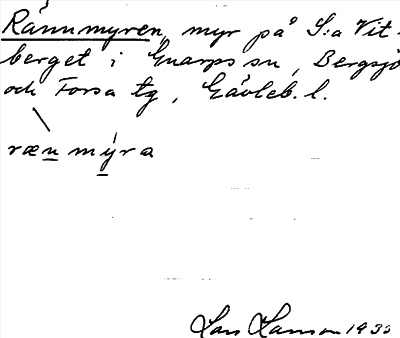 Rännmyren, myr på S:a Vit-
berget i Gnarps sn, Bergsjö
och Forsa tg, Gävleb. l.
ræn mýra
Lars Hanson 1933